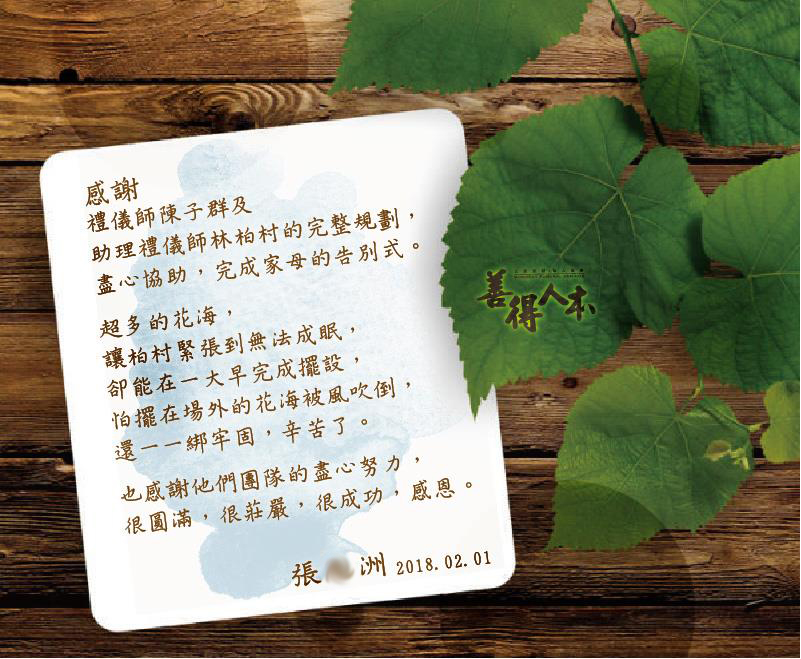 感謝
禮儀師陳子群及
助理禮儀師林柏村的完整規劃，
盡心協助，完成家母的告別式。
超多的花海，
讓柏村緊張到無法成眠，
卻能在一大早完成擺設，
怕擺在場外的花海被風吹倒，
還一一綁牢固，辛苦了。
也感謝他們團隊的盡心努力，
很圓滿，很莊嚴，很成功，感恩。
張 洲 2018.02.01
善得人本